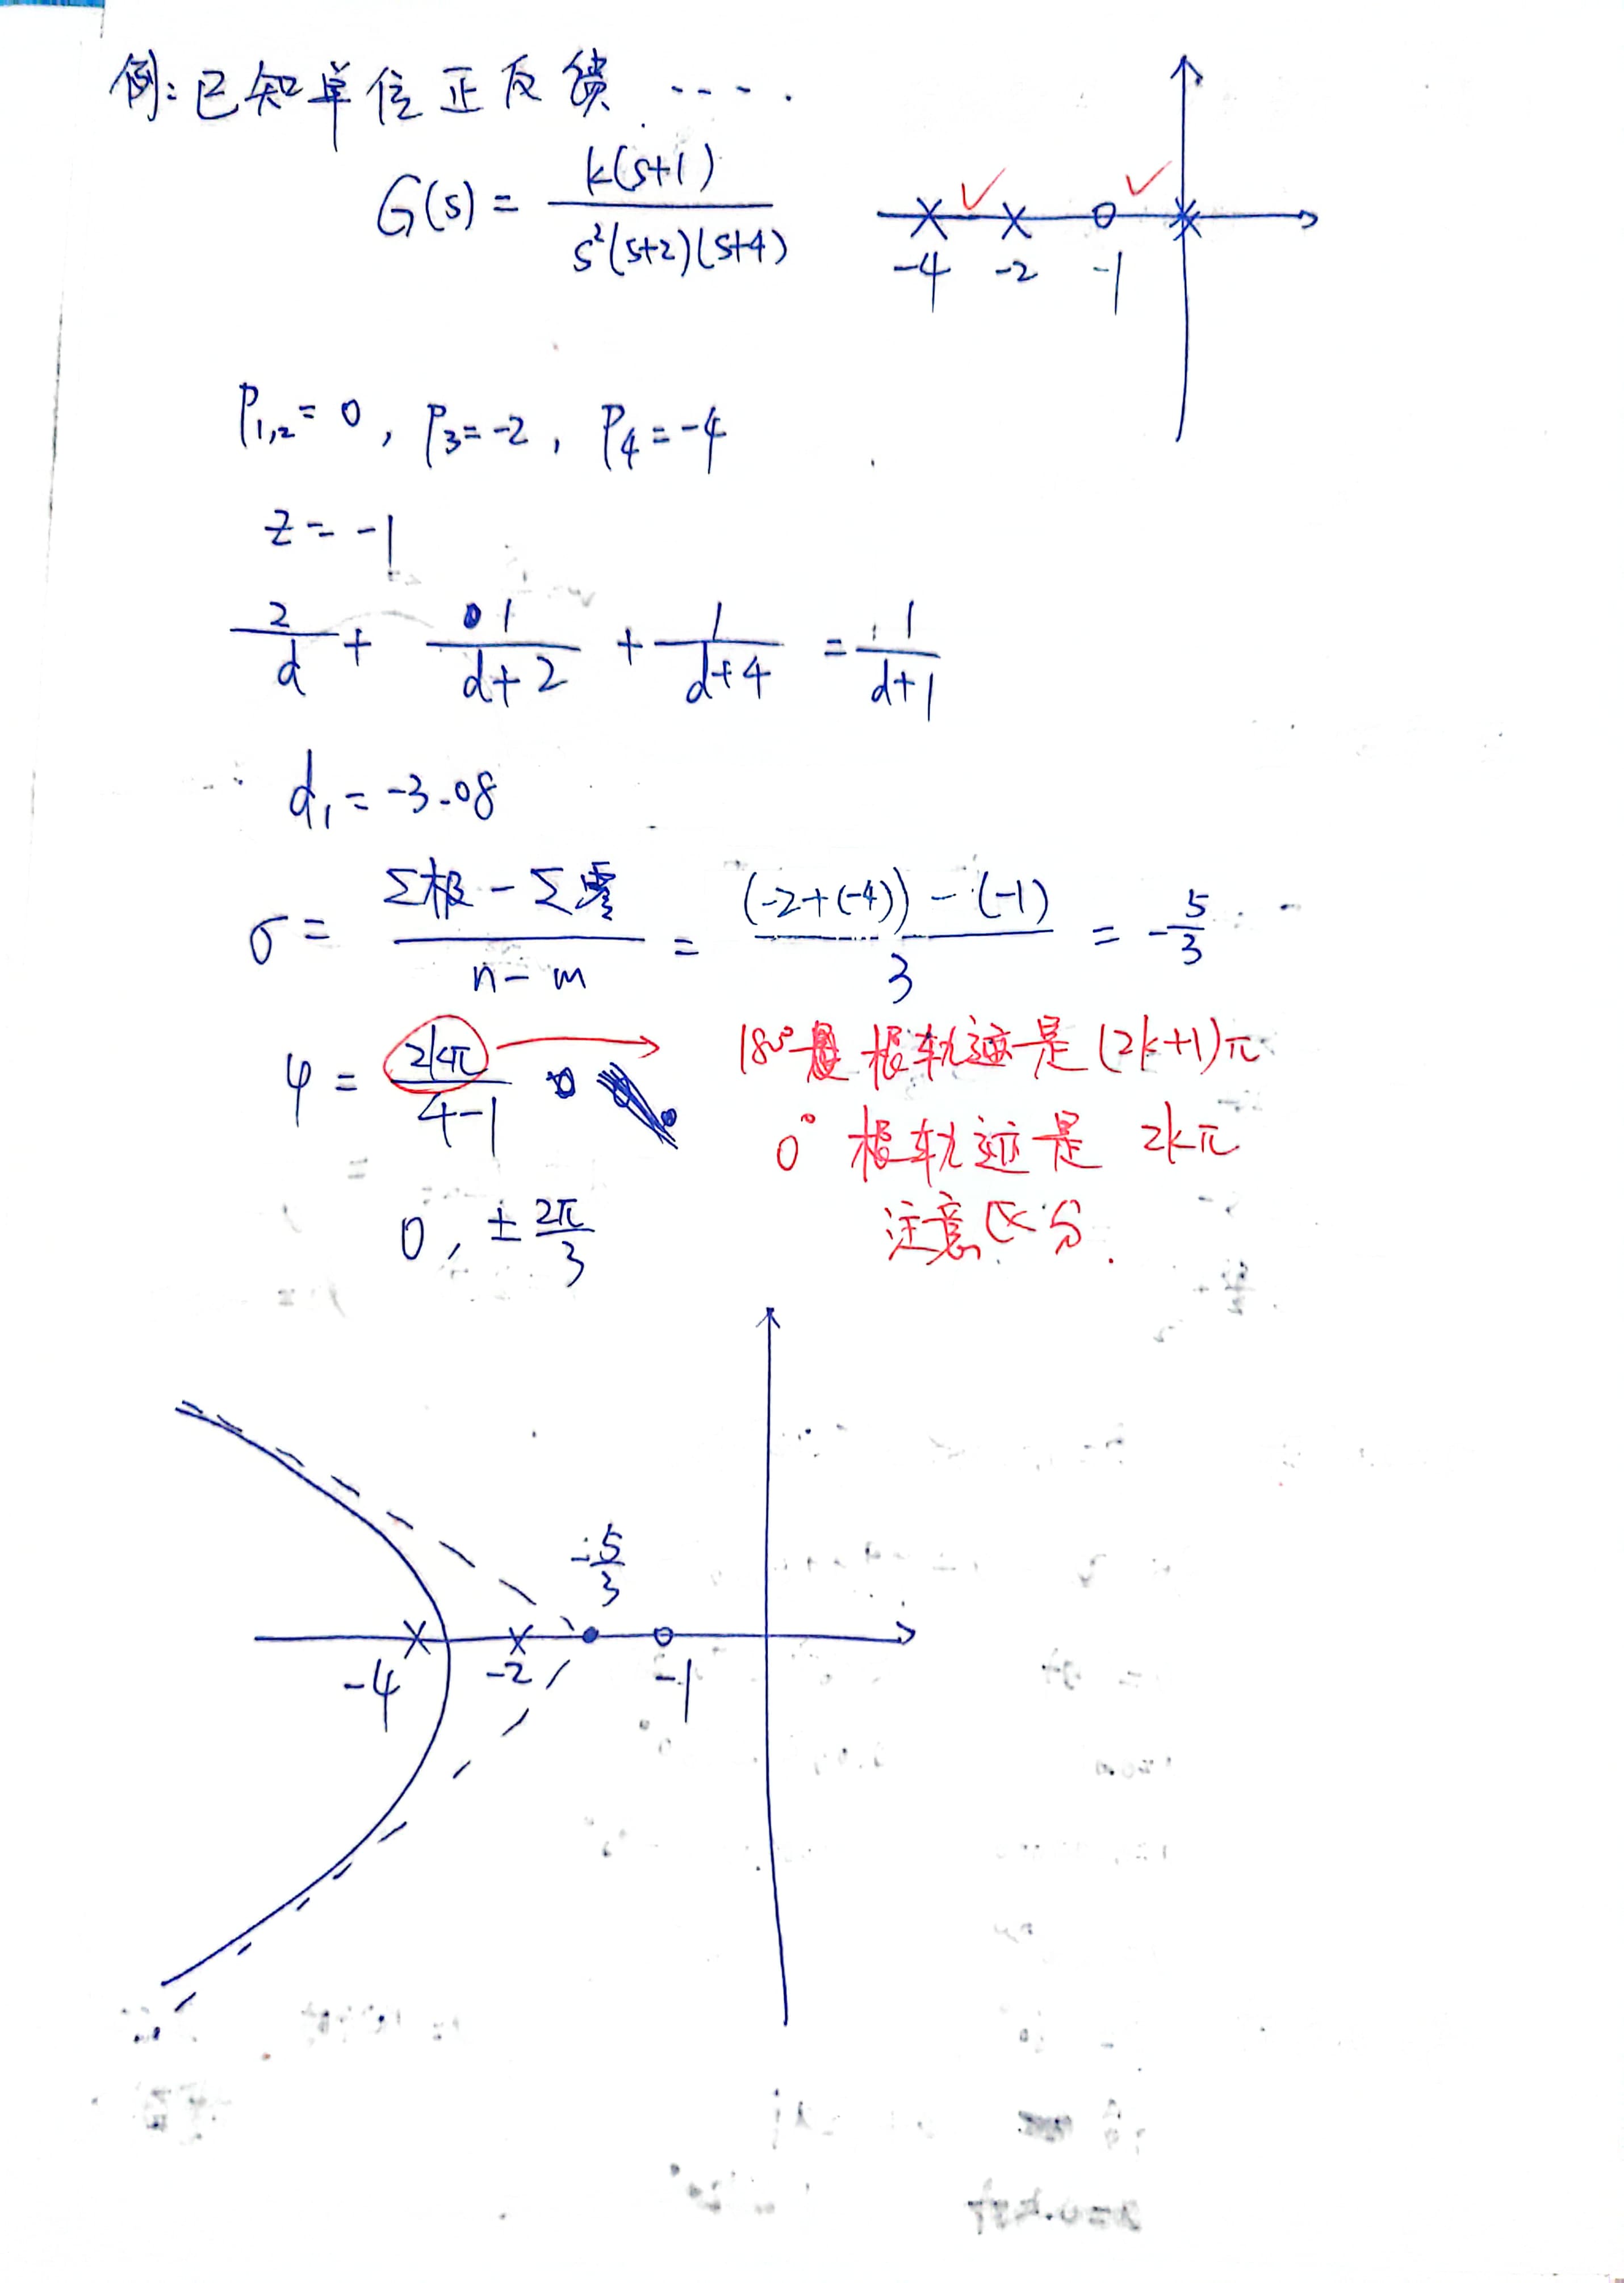 例:已知单位正反馈 ....
G(s) = k(s+1) / s²(s+2)(s+4)
-4 -2 -1
P1,2 = 0, P3 = -2, P4 = -4
z = -1
2/d + 1/(d+2) + 1/(d+4) = 1/(d+1)
d1 = -3.08
σ = (Σ极 - Σ零)/(n-m) = ((-2+(-4)) - (-1))/3 = -5/3
φ = 2kπ/(4-1) → 180° 根轨迹是 (2k+1)π
0° 根轨迹是 2kπ
0, ±2π/3 注意区分.
-5/3
-4 -2 -1